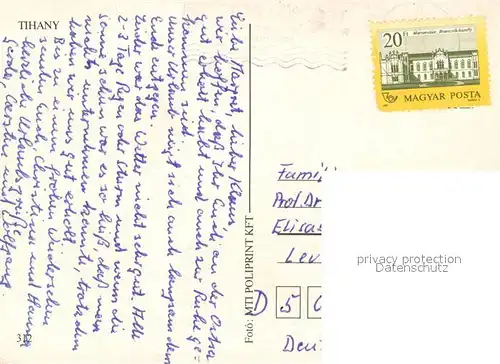 TIHANY
Liebe Margret, lieber Klaus,
wir hoffen, daß Ihr Euch an der Ostsee
gut erholt habt und auch zur Ruhe ge-
kommen seid.
Unser Urlaub neigt sich auch langsam dem
Ende entgegen.
Leider war das Wetter nicht sehr gut. Alle
2-3 Tage Regen oder Sturm und wenn die
Sonne schien war es so heiß, daß man
nichts unternehmen konnte, trotzdem
haben wir uns gut erholt.
Bis zu einem frohen Wiedersehen
senden Euch Christinen und Hanna
herzliche Urlaubsgrüße
Gerda, und Wolfgang.
312
Fotó: MTI POLIPRINT KFT
20 Ft
MAGYAR POSTA
Famil
Prof. Dr
Elisa
Lev
D 5
Deu
privacy protection
Datenschutz